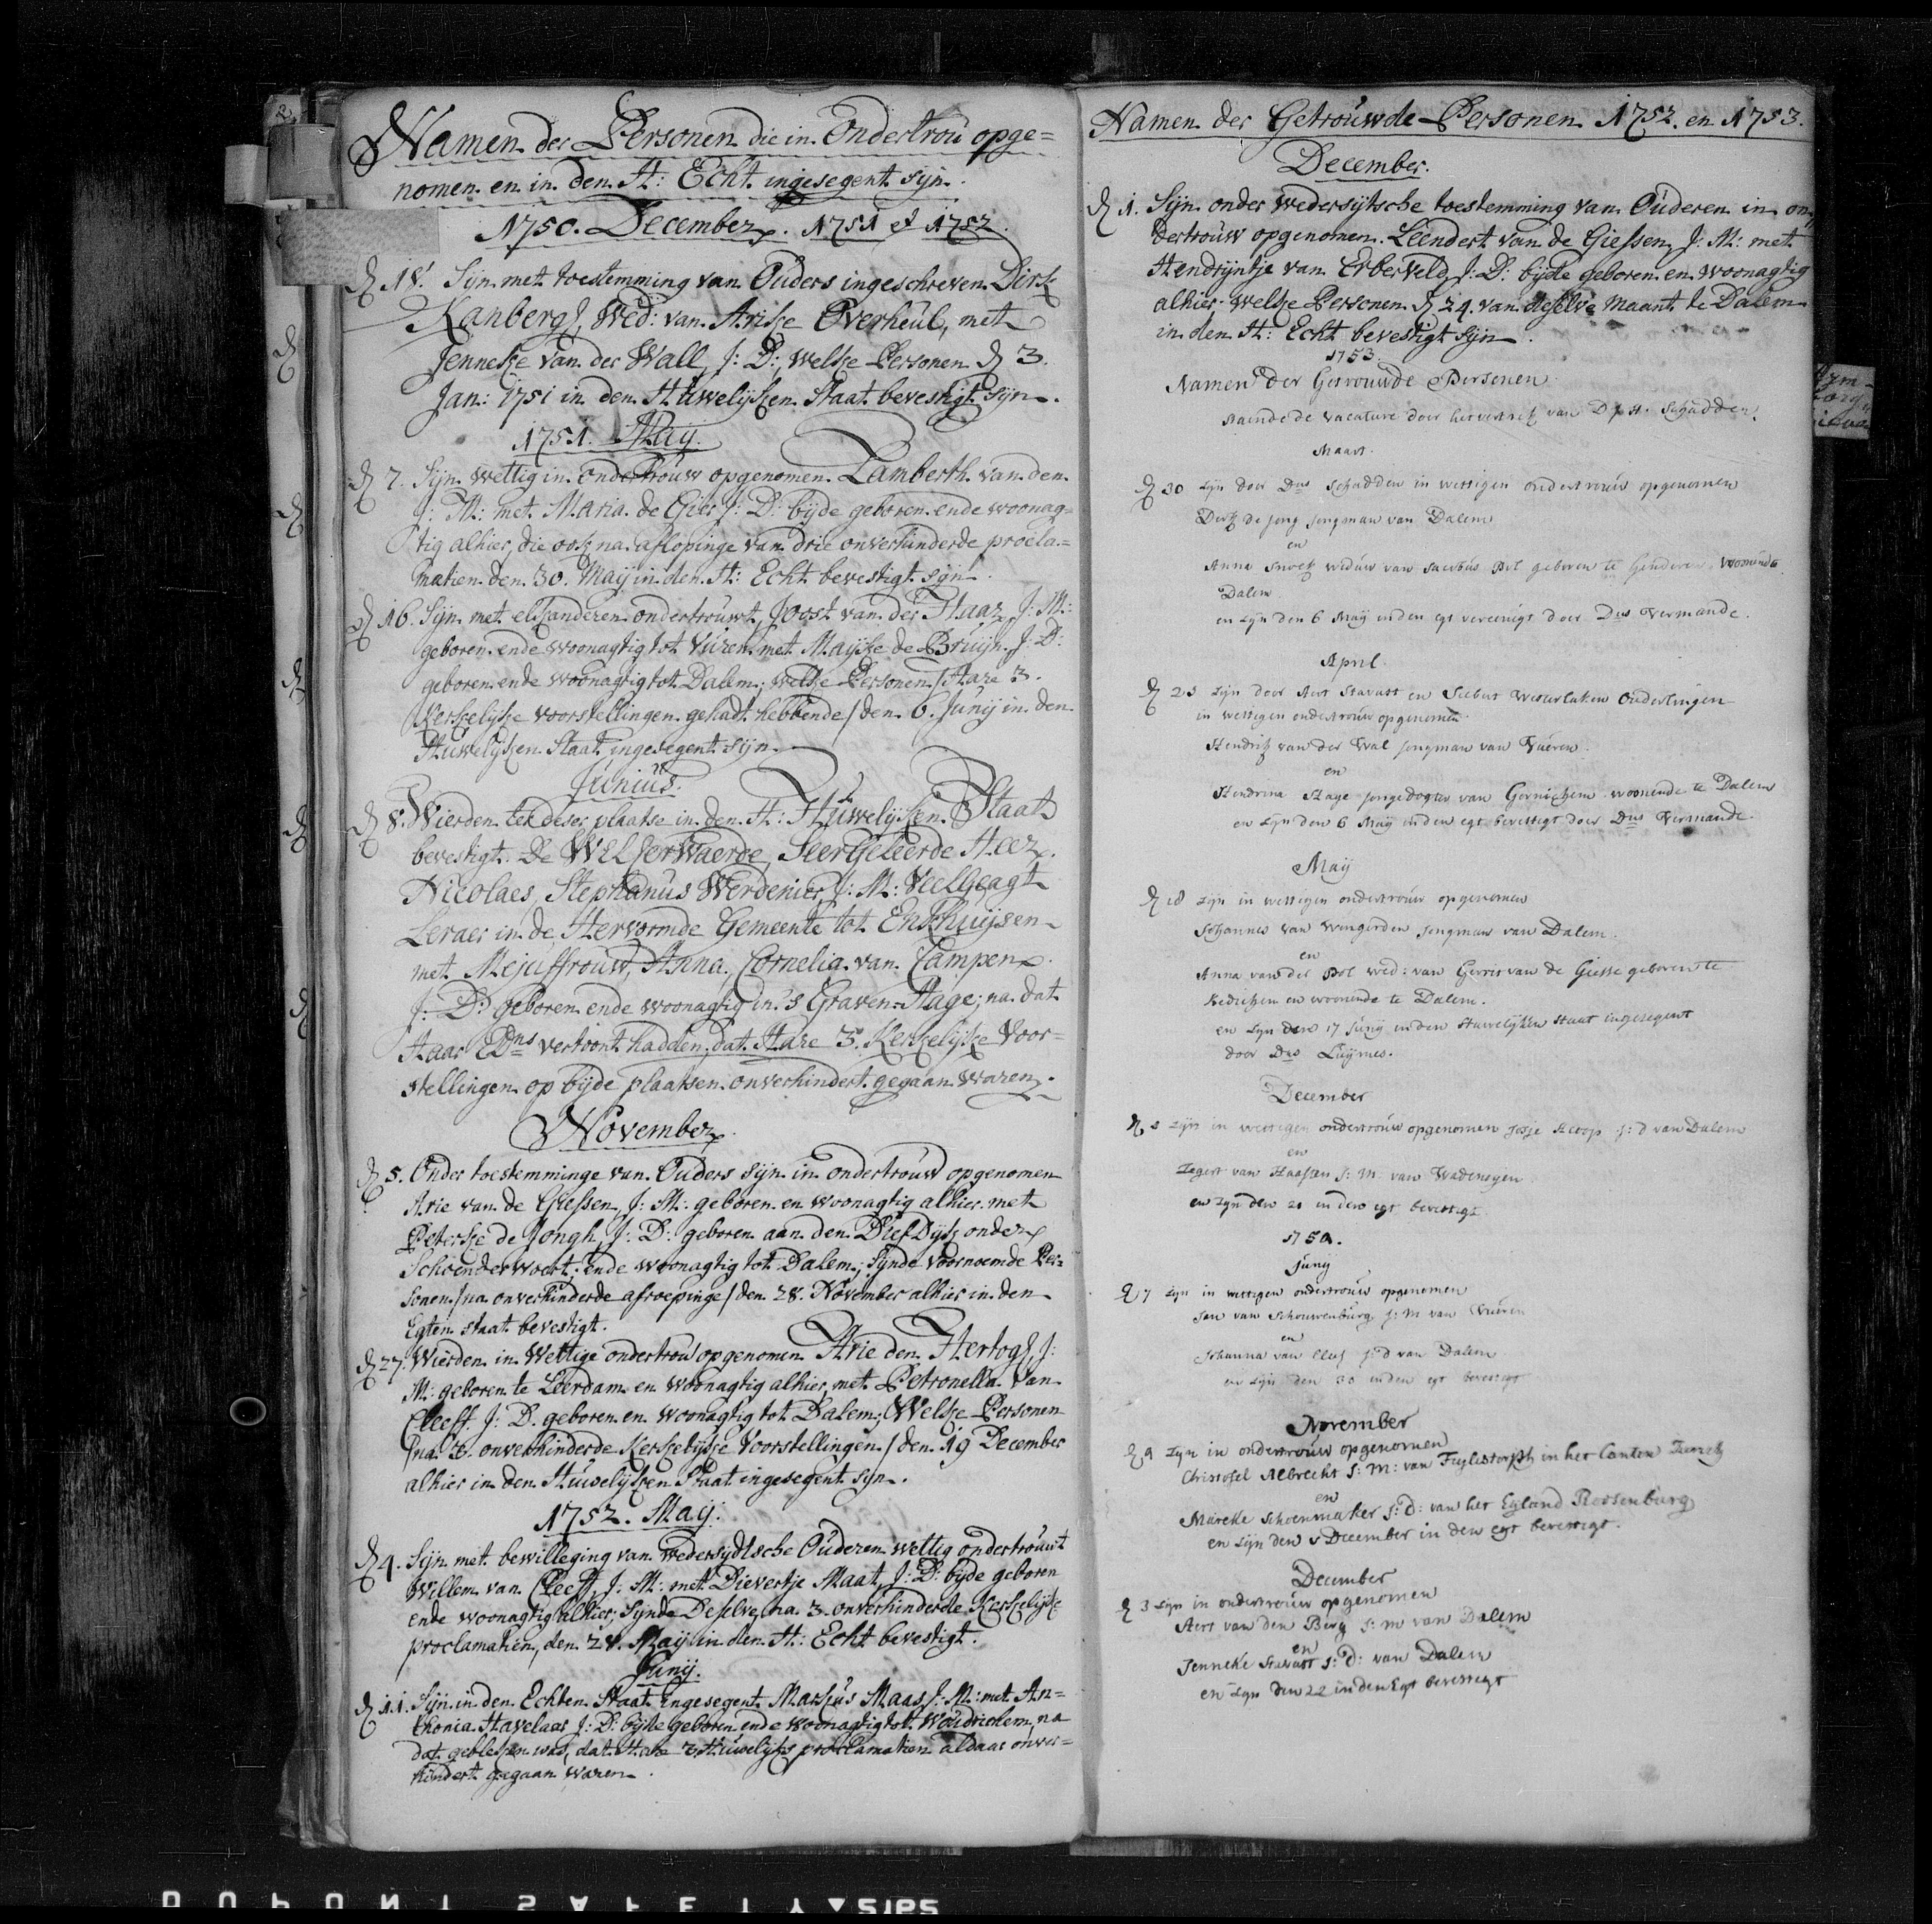 Namen der Personen die in Ondertrou opge=
nomen en in den H: Echt ingesegent sijn.
1750. December. 1751 et 1752.
D 18. Sijn met toestemming van Ouders ingeschreven Dirk
Kanbergh, Wed: van Arike Overheul, met
Jenneke van der Wall, J: D:, welke Personen D 3.
Jan: 1751 in den Huwelijken Staat bevestigt sijn.
1751. Maij.
D 7. Sijn wettig in ondertrouw opgenomen Lamberth van den
J: M: met Maria de Gier J: D: bijde geboren ende woonag=
tig alhier, die ook na aflopinge van drie onverhinderde procla=
matien den 30. Maij in den H: Echt bevestigt sijn.
D 16. Sijn met elkanderen ondertrouwt, Joost van der Haar, J: M:
geboren ende woonagtig tot Vuren met Mayke de Bruijn J: D:
geboren ende woonagtig tot Dalem; welke Personen / Hare 3.
Kerkelijke voorstellingen gehadt hebbende / den 6. Junij in den
Huwelijken Staat ingesegent sijn.
Junius.
D 8. Wierden te deser plaatse in den H: Huwelijken Staat
bevestigt. De WelEerwaerde, Seer Geleerde Heer
Nicolaes, Stephanus Werdenier, J: M: Veel Geagt
Leraer in de Hervormde Gemeente tot Enkhuijsen
met Mejuffrouw, Anna, Cornelia van Campen
J: D: geboren ende woonagtig in 's Graven-Hage; na dat
Haar EDns vertoont hadden, dat Hare 3. Kerkelijke Voor=
stellingen op bijde plaatsen onverhindert gegaan waren.
November.
D 5. Onder toestemminge van Ouders sijn in ondertrouw opgenomen
Arie van de Giessen, J: M: geboren en woonagtig alhier met
Peterke de Jongh, J: D: geboren aan den Dief Dijk onder
Schoenderwoert, ende woonagtig tot Dalem; sijnde voornoemde Per=
sonen / na onverhinderde afroepinge / den 28. November alhier in den
Egten staat bevestigt.
D 27. Wierden in Wettige ondertrou opgenomen Arie den Hertogh, J:
M: geboren te Leerdam en woonagtig alhier, met Petronella van
Cleeff. J: D. geboren en woonagtig tot Dalem; Welke Personen
/ na 3. onverhinderde Kerkelijke Voorstellingen / den 19 December
alhier in den Huwelijken Staat ingesegent sijn.
1752. Maij.
D 4. Sijn met bewilleging van wedersydtsche Ouderen wettig ondertrouwt
Willem van Cleeff, J: M: met Dievertje Maat, J: D: bijde geboren
ende woonagtig alhier; sijnde Deselve, na 3. onverhinderde Kerkelijke
proclamatien, den 28. Maij in den H: Echt bevestigt.
Junij.
D 11. Sijn in den Echten Staat ingesegent Markus Maas J: M: met An=
thonia Havelaar J: D: bijde geboren ende woonagtig tot Woudrichem, na
dat gebleken was, dat Hare 3 Huwelijks proclamatien aldaar onver=
hindert gegaan waren.
Namen der Getrouwde Personen 1752. en 1753.
December.
D 1. Sijn onder wedersijtsche toestemming van Ouderen in on=
dertrouw opgenomen. Leendert van de Giessen, J: M: met
Hendrijntje van Erberveld, J: D: bijde geboren en woonagtig
alhier. welke Personen D 24. van deselve maant te Dalem
in den H: Echt bevestigt sijn.
1753.
Namen der Getrouwde Personen
staende de vacature door het vertrek van Ds H. Schadden.
Maart.
D 30 Zijn door Dns Schadden in wettigen ondertrouw opgenomen
Derk de Jong Jongman van Dalem
en
Anna Snoek weduw van Jacobus Pol geboren te Genderen, woonende
Dalem
en zijn den 6 Maij in den egt vereenigt door Dns Vermande.
April.
D 23 Zijn door Aert Stavast en Seebert Westerlaken Ouderlingen
in wettigen ondertrouw opgenomen
Hendrik van der Wal Jongman van Vueren
en
Hendrina Hage jongedogter van Gornichem woonende te Dalem
en zijn den 6 Maij in den egt bevestigt door Dns Vermande.
Maij
D 18 zijn in wettigen ondertrouw opgenomen
Johannes van Wengerden Jongman van Dalem.
en
Anna van der Pol wed: van Gerrit van de Giesse geboren te
Kedichem en woonende te Dalem.
en zijn den 17 Junij in den Huwelijken staat ingesegent
door Dns Luijmes.
December
D 1 zijn in wettigen ondertrouw opgenomen Jesje Stoop J: d van Dalem
en
Zegert van Haaften J: M: van Wadenoyen
en zijn den 21 in den egt bevestigt
1754.
Junij
D 7 zijn in wettigen ondertrouw opgenomen
Jan van Schouwenburg J: m van Vueren
en
Johanna van Cleef J: d van Dalem
en zijn den 30 in den egt bevestigt
November
D 9 zijn in ondertrouw opgenomen
Christofel Albrecht J: M: van in het Canton Zurich
en
Mareke Schoenmaker J: d: van het Eyland Roosenburg
en zijn den 1 December in den egt bevestigt.
December
D 3 zijn in ondertrouw opgenomen
Aert van den Berg J: m van Dalem
en
Jenneke Stavast J: D: van Dalem
en zijn den 22 in den Egt bevestigt
DUPONT SAFETY